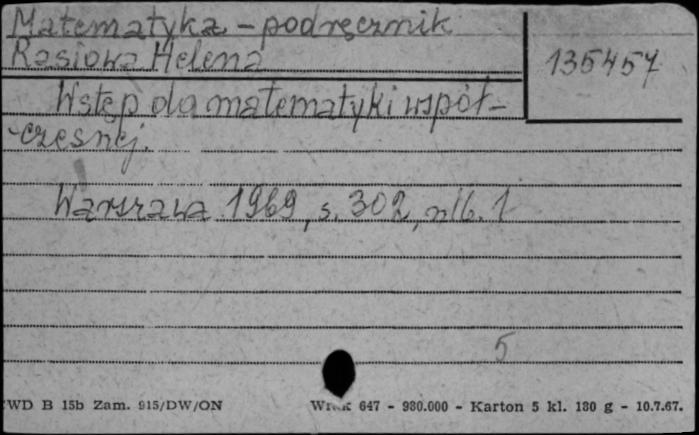 Matematyka - podręcznik
Rasiowa Helena
135457
Wstęp do matematyki współ-
czesnej.
Warszawa 1969, s. 302, nlb. 1
5
WD B 15b Zam. 915/DW/ON 647 - 930.000 - Karton 5 kl. 180 g - 10.7.67.